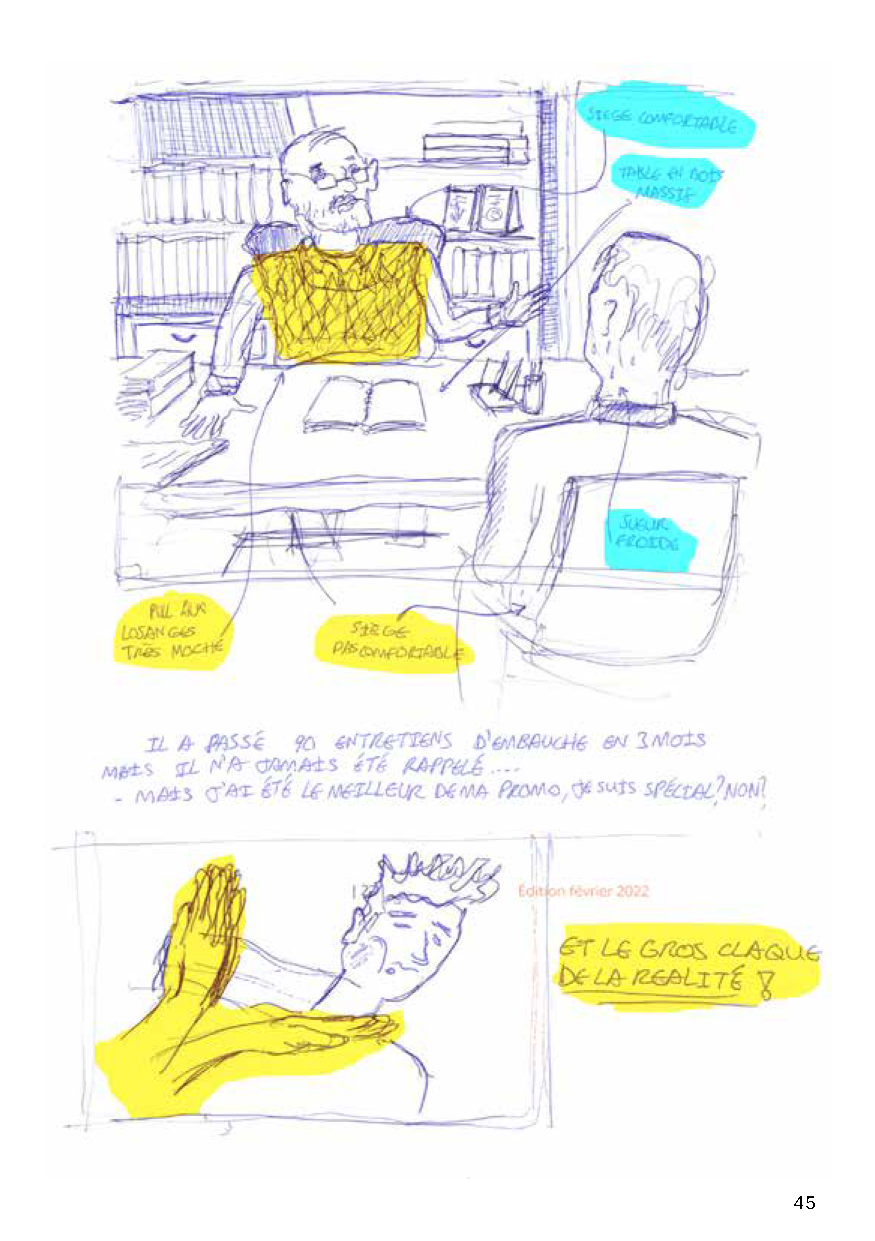 SIEGE COMFORTABLE
TABLE EN BOIS
MASSIF
SUEUR
FROIDE
PULL AUX
LOSANGES
TRÈS MOCHE
SIÈGE
PAS COMFORTABLE
IL A PASSÉ 90 ENTRETIENS D'EMBAUCHE EN 3 MOIS
MAIS IL N'A JAMAIS ÉTÉ RAPPELÉ....
- MAIS J'AI ÉTÉ LE MEILLEUR DE MA PROMO, JE SUIS SPÉCIAL? NON?
Édition février 2022
ET LE GROS CLAQUE
DE LA REALITÉ !
45